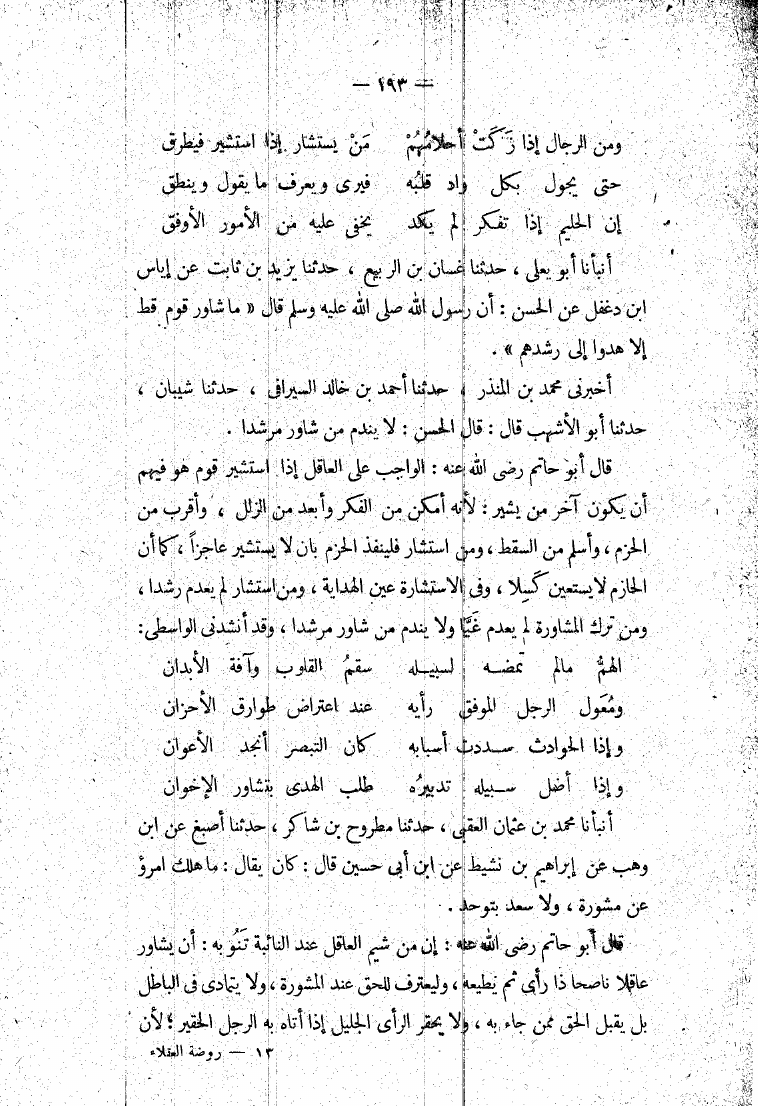 — ١٩٣ —
ومن الرجال إذا زَكَتْ أحلامُهُمْ مَنْ يستشار إذا استشير فيطرق
حتى يجول بكل واد قلبُه فيرى ويعرف ما يقول وينطق
إن الحليم إذا تفكر لم يكد يخفى عليه من الأمور الأوفق
أنبأنا أبو يعلى ، حدثنا غسان بن الربيع ، حدثنا يزيد بن ثابت عن إياس
ابن دغفل عن الحسن : أن رسول الله صلى الله عليه وسلم قال « ما شاور قوم قط
إلا هدوا إلى رشدهم » .
أخبرنى محمد بن المنذر ، حدثنا أحمد بن خالد السيرافى ، حدثنا شيبان ،
حدثنا أبو الأشهب قال : قال الحسن : لا يندم من شاور مرشدا .
قال أبو حاتم رضى الله عنه : الواجب على العاقل إذا استشير قوم هو فيهم
أن يكون آخر من يشير : لأنه أمكن من الفكر وأبعد من الزلل ، وأقرب من
الحزم ، وأسلم من السقط ، ومن استشار فلينفذ الحزم بان لا يستشير عاجزاً ، كما أن
الحازم لا يستعين كَسِلا ، وفى الاستشارة عين الهداية ، ومن استشار لم يعدم رشدا ،
ومن ترك المشاورة لم يعدم غَيًّا ولا يندم من شاور مرشدا ، وقد أنشدنى الواسطى:
الهمُّ مالم تمضه لسبيله سقمُ القلوب وآفة الأبدان
ومُعَول الرجل الموفق رأيه عند اعتراض طوارق الأحزان
وإذا الحوادث سددت أسبابه كان التبصر أنجد الأعوان
وإذا أضل سبيله تدبيرُه طلب الهدى بتشاور الإخوان
أنبأنا محمد بن عثمان العقبى ، حدثنا مطروح بن شاكر ، حدثنا أصبغ عن ابن
وهب عن إبراهيم بن نشيط عن ابن أبى حسين قال : كان يقال : ما هلك امرؤ
عن مشورة ، ولا سعد بتوحد .
قال أبو حاتم رضى الله عنه : إن من شيم العاقل عند النائبة تَنُوبه : أن يشاور
عاقلا ناصحا ذا رأى ثم يطيعه ، وليعترف للحق عند المشورة ، ولا يتمادى فى الباطل
بل يقبل الحق ممن جاء به ، ولا يحقر الرأى الجليل إذا أتاه به الرجل الحقير ؛ لأن
١٣ — روضة العقلاء